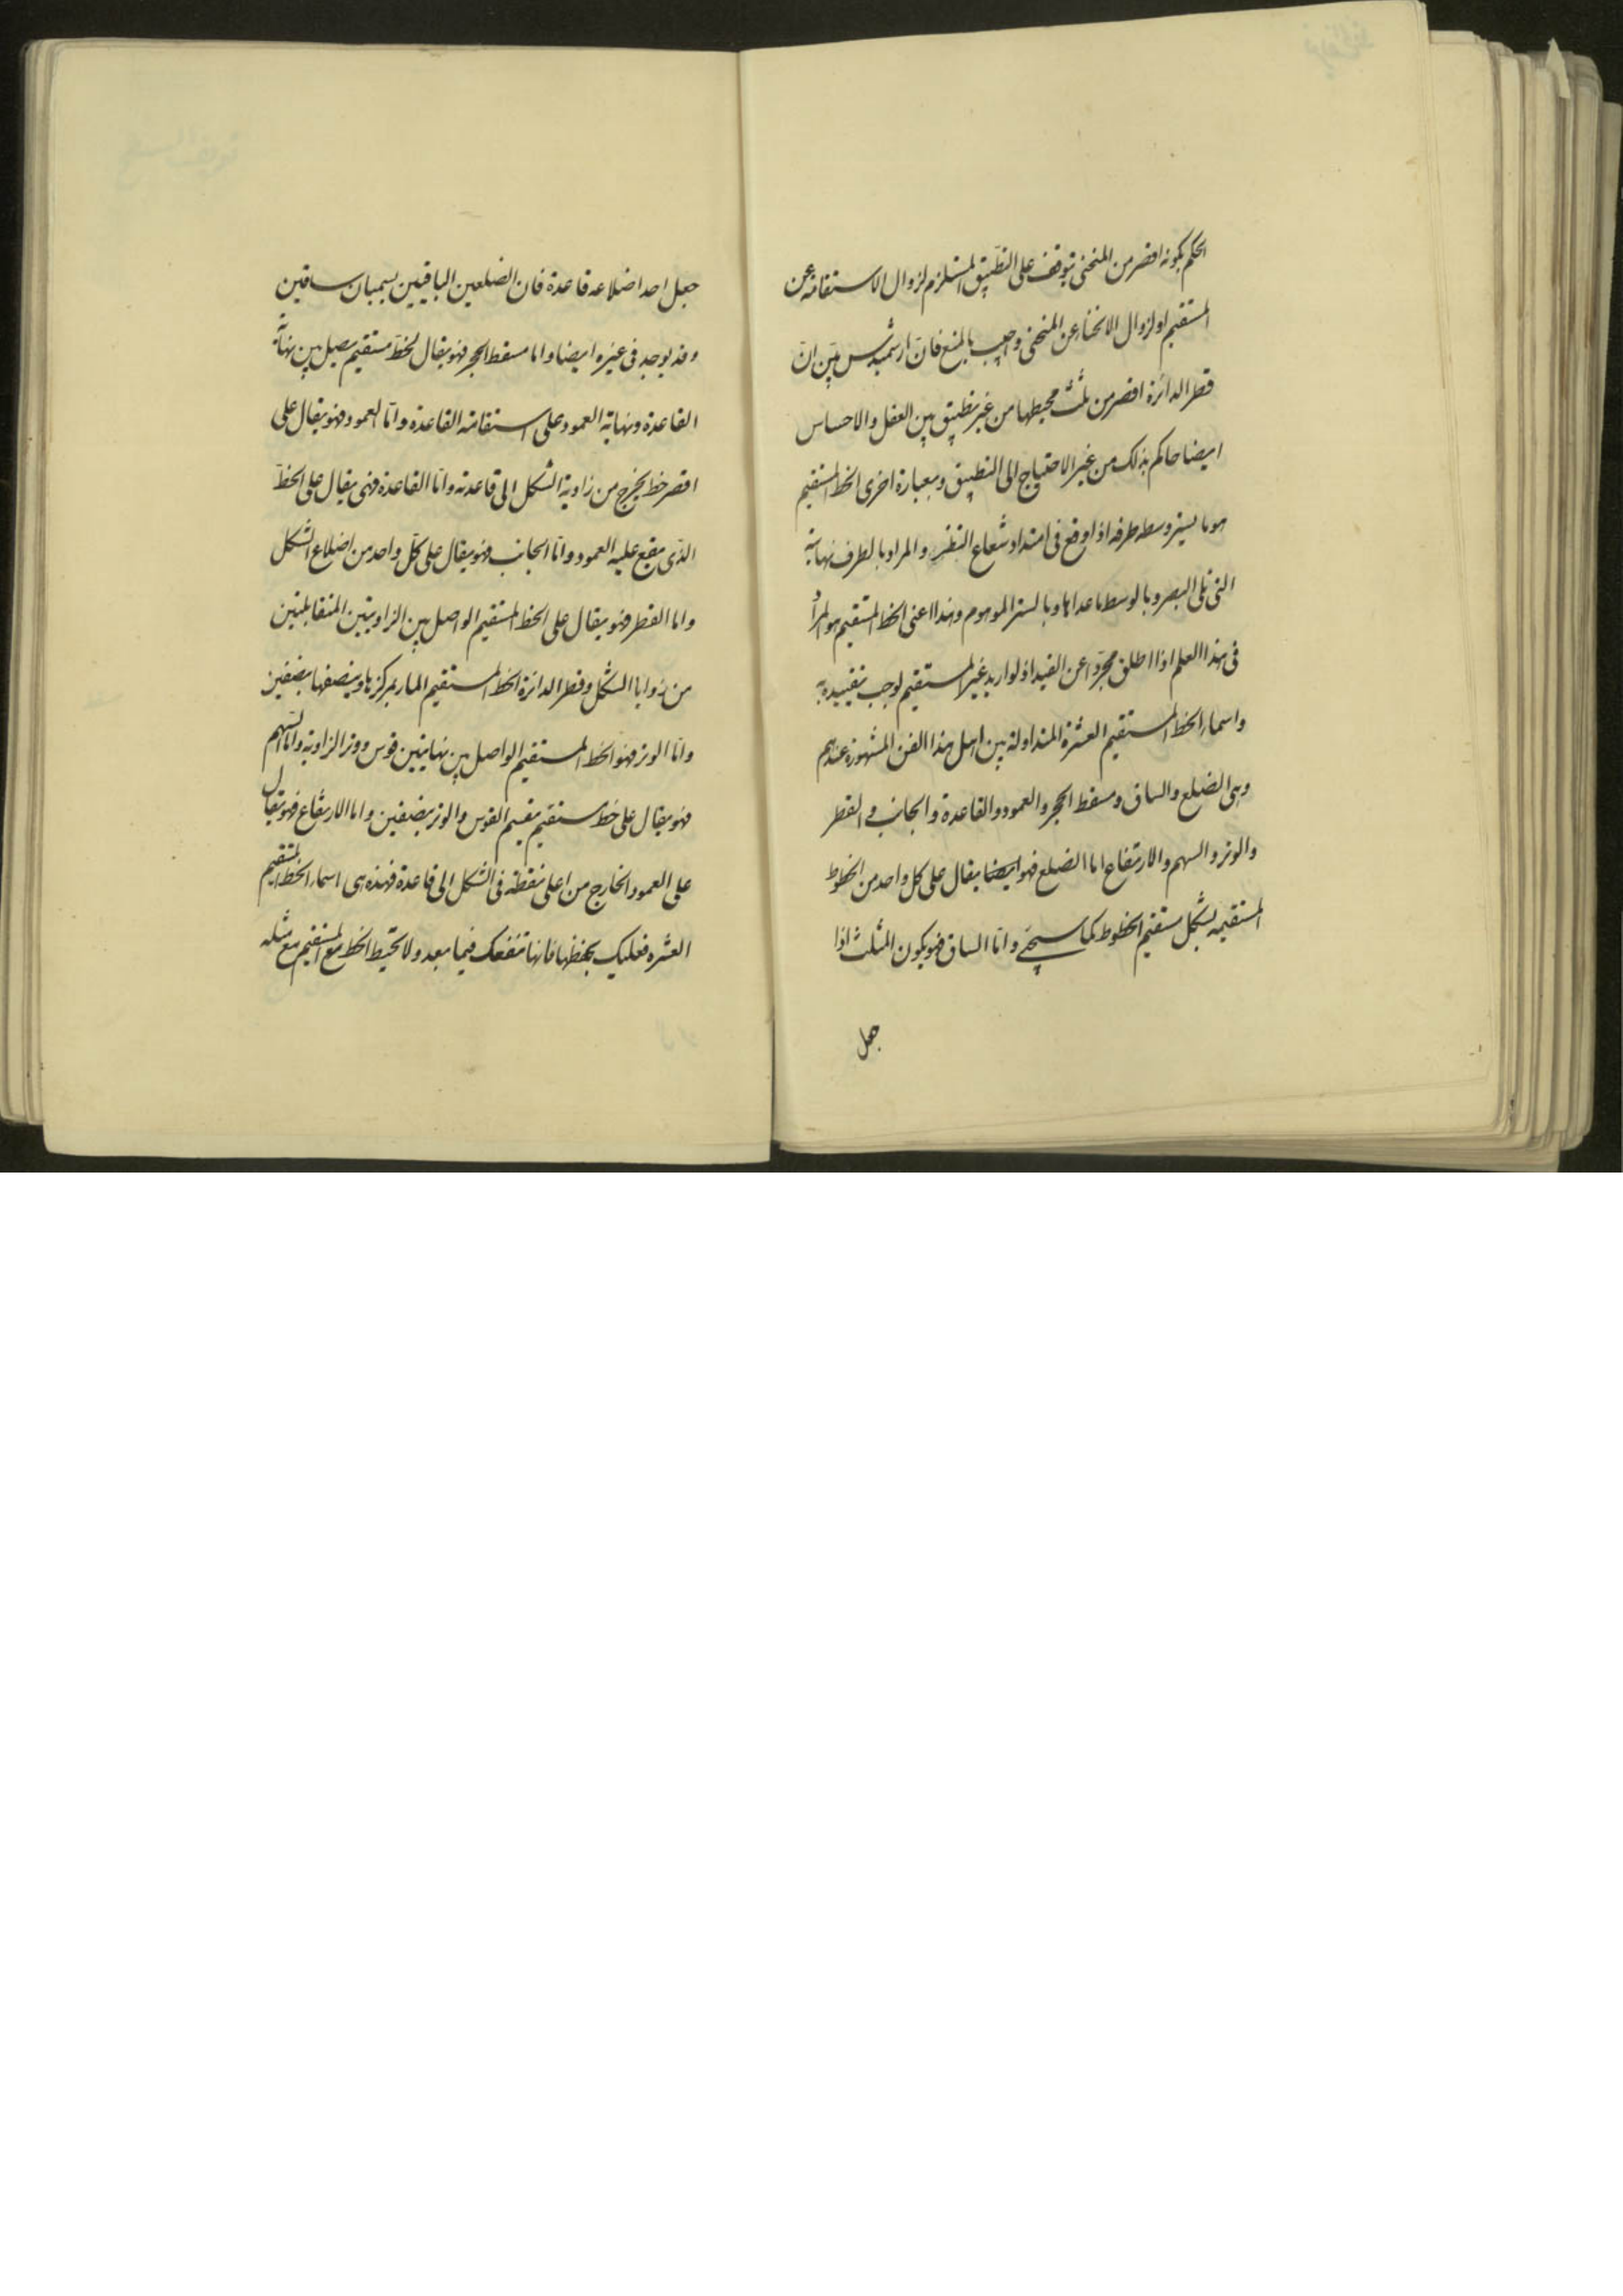 الحكم بكونه اقصر من المنحنى يتوقف على التطبيق المستلزم لزوال الاستقامة عن
المستقيم او لزوال الانحناء عن المنحنى واجيب بالمنع فان ارشميدس بيّن انّ
قطر الدائرة اقصر من ثلث محيطها من غير تطبيق بين العقل والاحساس
ايضا حاكم بذلك من غير الاحتياج الى التطبيق وبعبارة اخرى الخط المستقيم
هو ما يستر وسطه طرفه اذا وقع فى امتداد شعاع النظر والمراد بالطرف نهايته
التى تلى البصر وبالوسط ما عداها وبالستر الموهوم وهذا اعنى الخط المستقيم هو المراد
فى هذا العلم اذا اطلق مجرّدا عن القيد اذ لو اريد غير المستقيم لوجب تقييده به
واسماء الخط المستقيم العشرة المتداولة بين اهل هذا الفن المشهورة عندهم
وهى الضلع والساق ومسقط الحجر والعمود والقاعدة والجانب والقطر
والوتر والسهم والارتفاع اما الضلع فهو ايضا يقال على كل واحد من الخطوط
المستقيمة بشكل مستقيم الخطوط كما سيجئ وامّا الساق فهو يكون المثلث اذا
جعل
جعل احد اضلاعه قاعدة فان الضلعين الباقيين يسميان ساقين
وقد يوجد فى غيره ايضا واما مسقط الحجر فهو يقال لخطّ مستقيم يصل بين نهاية
القاعدة ونهاية العمود على استقامة القاعدة وامّا العمود فهو يقال على
اقصر خط يخرج من زاوية الشكل الى قاعدته وامّا القاعدة فهى يقال على الخطّ
الذّى يقع عليه العمود وامّا الجانب فهو يقال على كلّ واحد من اضلاع الشكل
واما القطر فهو يقال على الخط المستقيم الواصل بين الزاويتين المتقابلتين
من زوايا الشكل وقطر الدائرة الخط المستقيم المار بمركزها وينصفها بنصفين
وامّا الوتر فهو الخط المستقيم الواصل بين نهايتين قوس ووتر الزاوية وامّا السهم
فهو يقال على خط مستقيم يقسم القوس والوتر بنصفين واما الارتفاع فهو يقال
على العمود الخارج من اعلى نقطة فى الشكل الى قاعدة فهذه هى اسماء الخط المستقيم
العشره فعليك بحفظها فانها تنفعك فيما بعد ولا تحيط الخط المستقيم مع مثله